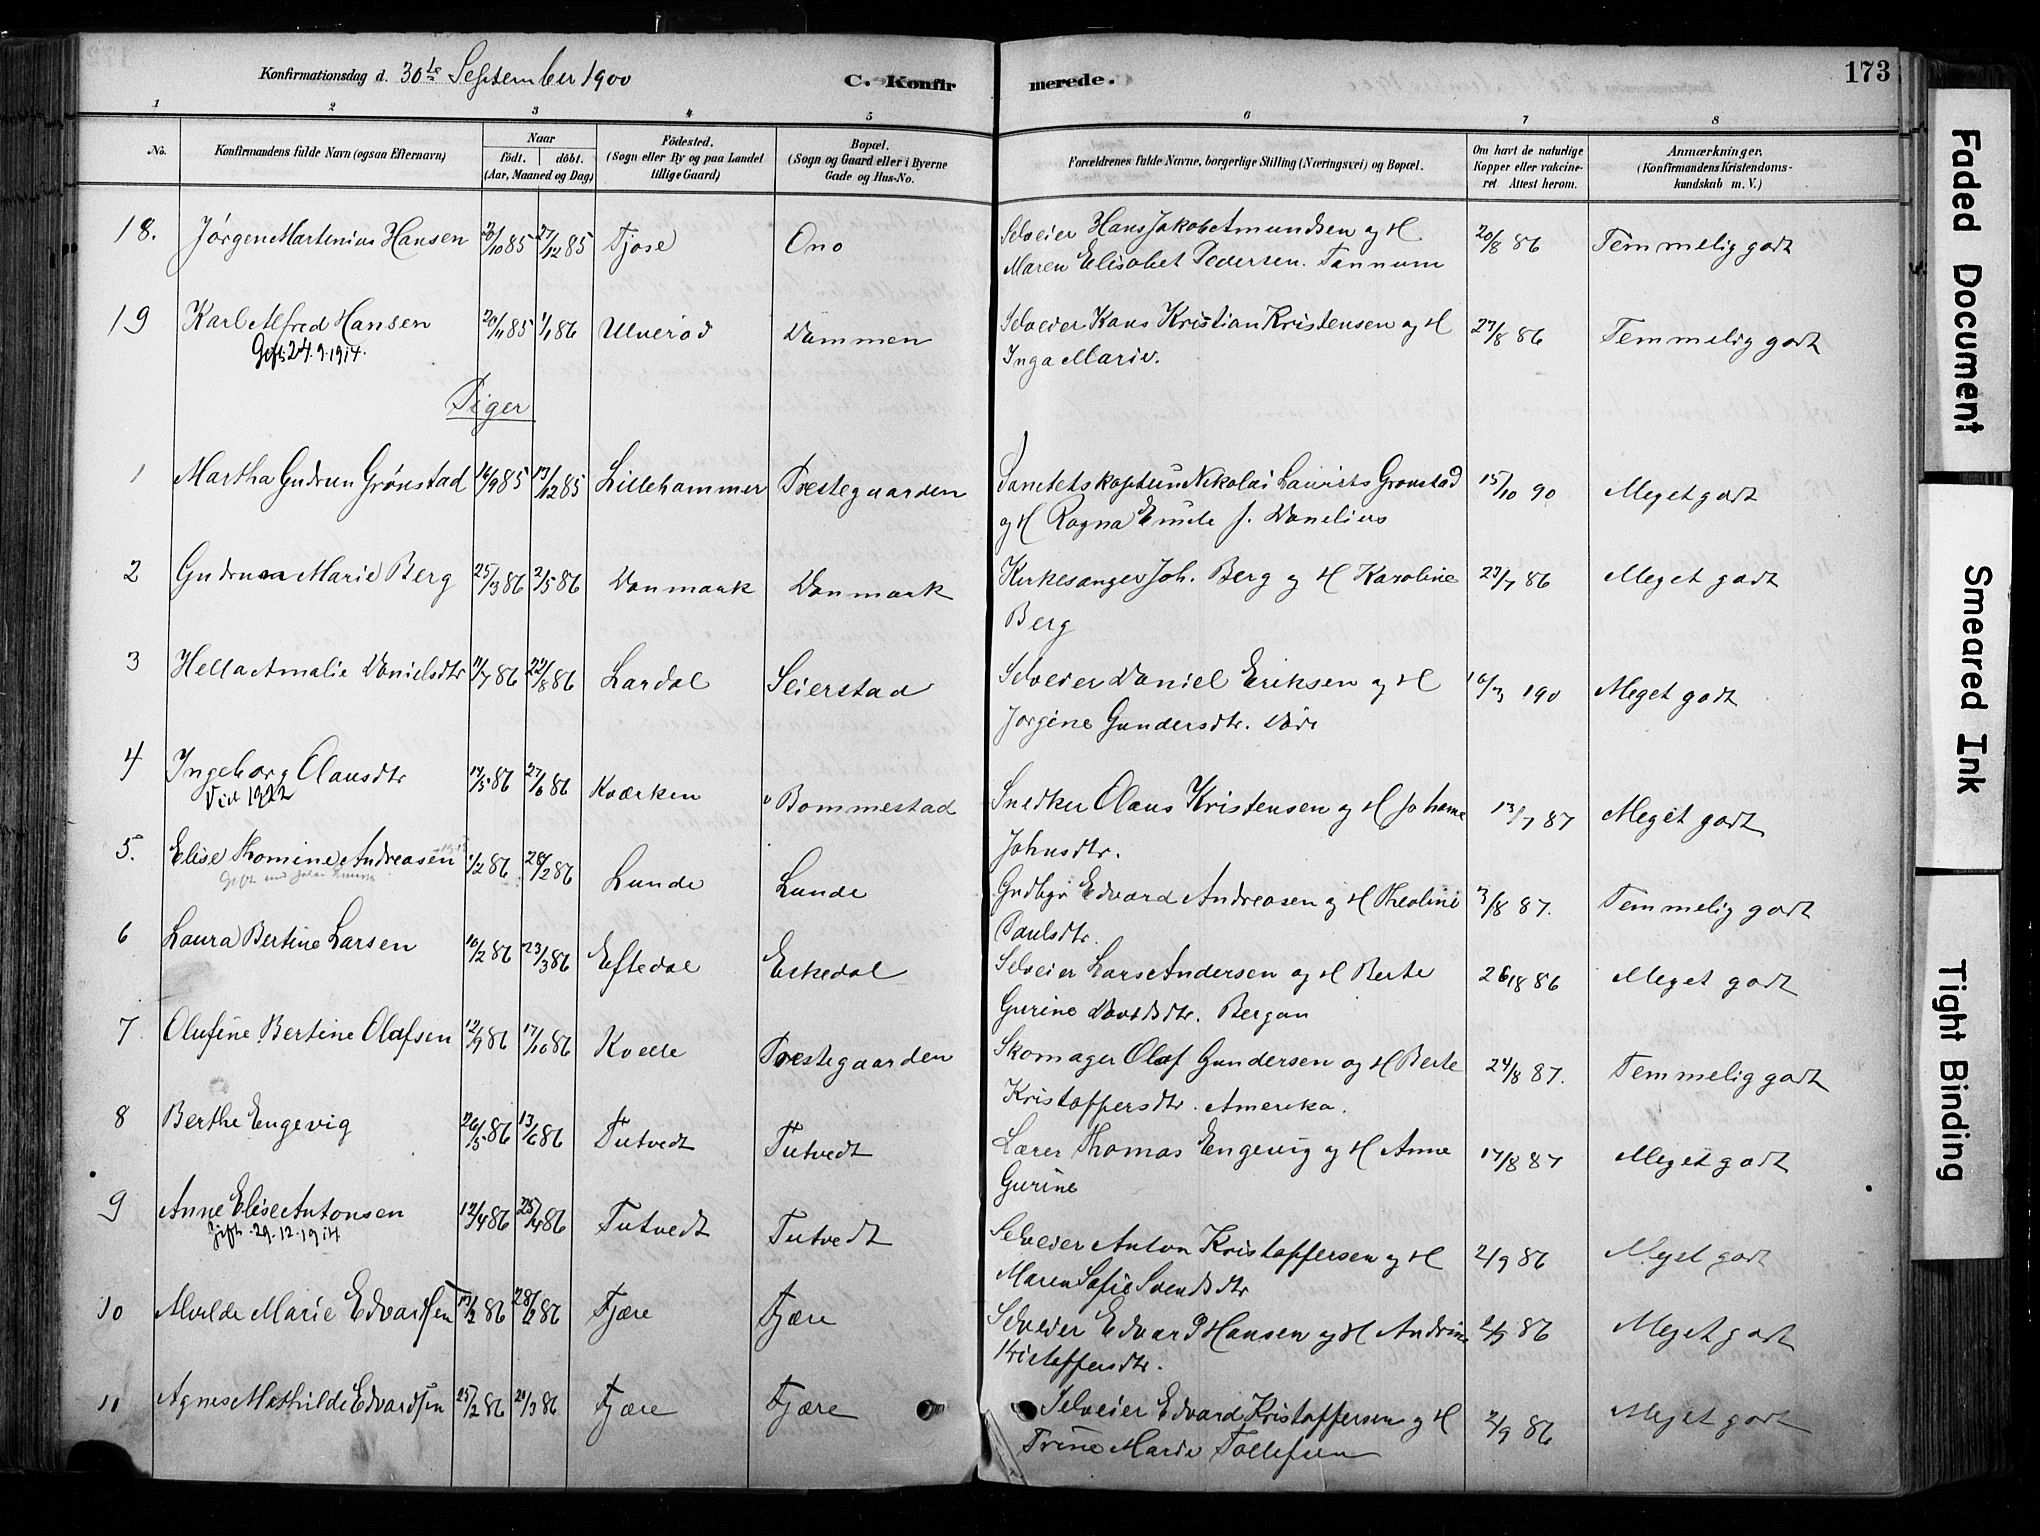 Konfirmationsdag d. 30te September 1900
C. Konfir merede. 173
1 2 3 4 5 6 7 8
No. Konfirmandens fulde Navn (ogsaa Efternavn) Naar født. døbt. (Aar, Maaned og Dag) Födested. (Sogn eller By og paa Landet tillige Gaard) Bopæl. (Sogn og Gaard eller i Byerne Gade og Hus-No. Forældrenes fulde Navne, borgerlige Stilling (Næringsvei) og Bopæl. Om havt de naturlige Kopper eller vakcineret. Attest herom. Anmærkninger. (Konfirmandens Kristendomskundskab m. V.)
18. Jørgen Martinius Hansen 20/10 85 27/12 85 Fjøse Ono Selveier Hans Jakob Amundsen og H 20/8 86 Temmelig godt
Maren Elisabet Pedersen. Tannum
19 Karl Alfred Hansen 20/11 85 1/1 86 Ulverød Dammen Selveier Hans Kristian Kristensen og H 27/8 86 Temmelig godt
Gift 24.9.1914. Inga Marie.
Piger
1 Martha Gudrun Grønstad 16/9 85 13/12 85 Lillehammer Prestegaarden Sanitetskaptein Nikolai Laurits Grønstad 15/10 90 Meget godt
og H Ragna Emilie f. Danelius
2 Gudrun Marie Berg 25/3 86 2/5 86 Danmark Danmark Kirkesanger Joh. Berg og H Karoline 23/7 86 Meget godt
Berg
3 Hella Amalie Danielsdtr 11/7 86 22/8 86 Lardal Seierstad Selveier Daniel Eriksen og H 190 Meget godt
Jørgine Gundersdtr.
4 Ingeborg Olausdtr 14/5 86 27/6 86 Kværken Bommestad Snedker Olaus Kristensen og H Johanne 13/7 87 Meget godt
Vid 1922 Johnsdtr.
5. Elise Thomine Andreasen 1/2 86 28/2 86 Lunde Lunde Grdbgr Edvard Andreasen og H Theoline 3/8 87. Temmelig godt
Gift med
Paulsdtr.
6 Laura Bertine Larsen 10/2 86 23/3 86 Eftedal Eskedal Selveier Lars Andersen og H Berte 26/8 86 Meget godt
Gurine Davidsdtr. Bergan
7. Olufine Bertine Olafsen 12/9 86 17/10 86 Kvelle Prestegaarden Skomager Olaf Gundersen og H Berte 24/8 87. Temmelig godt
Kristoffersdtr. Amerika.
8 Berthe Engevig 26/5 86 13/6 86 Tutvedt Tutvedt Lærer Thomas Engevig og H Anne 17/8 87 Meget godt
Gurine
9 Anne Elise Antonsen 12/4 86 25/4 86 Tutvedt Tutvedt Selveier Anton Kristoffersen og H 2/9 86 Meget godt
Gift. 29.12.1914 Maren Sofie Svendsdtr
10 Alvilde Marie Edvardsen 13/2 86 28/2 86 Fjære Fjære Selveier Edvard Hansen og H Andrine 2/9 86 Meget godt
Kristoffersdtr.
11 Agnes Mathilde Edvardsen 25/2 86 21/3 86 Fjære Fjære Selveier Edvard Kristoffersen og H 2/9 86 Meget godt
Trine Marie Tollefsen
Faded Document
Smeared Ink
Tight Binding